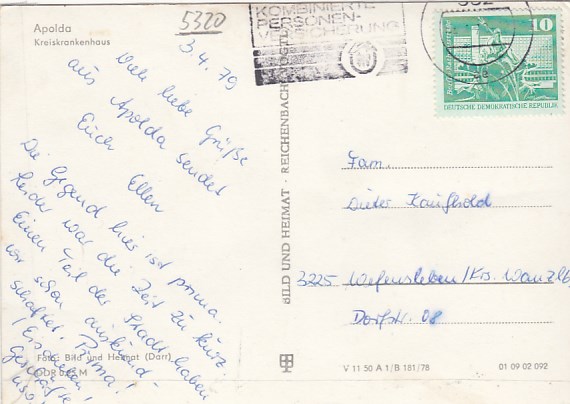 Apolda
Kreiskrankenhaus
5320
3.4.79
Viele liebe Grüße
aus Apolda sendet
Euch Ellen
Die Gegend hier ist prima.
Leider war die Zeit zu kurz.
Einen Teil der Stadt haben
wir schon
Prima!
Eisdielen
Geschäfte
usw.
Foto: Bild und Heimat (Darr)
DDR M
KOMBINIERTE
PERSONEN-
VERSICHERUNG
10
DEUTSCHE DEMOKRATISCHE REPUBLIK
BILD UND HEIMAT · REICHENBACH VOGTL
Fam.
Dieter Kaufhold
3225 Wefensleben/Krs. Wanzlb
Dorfstr. 08
V 11 50 A 1/B 181/78
01 09 02 092